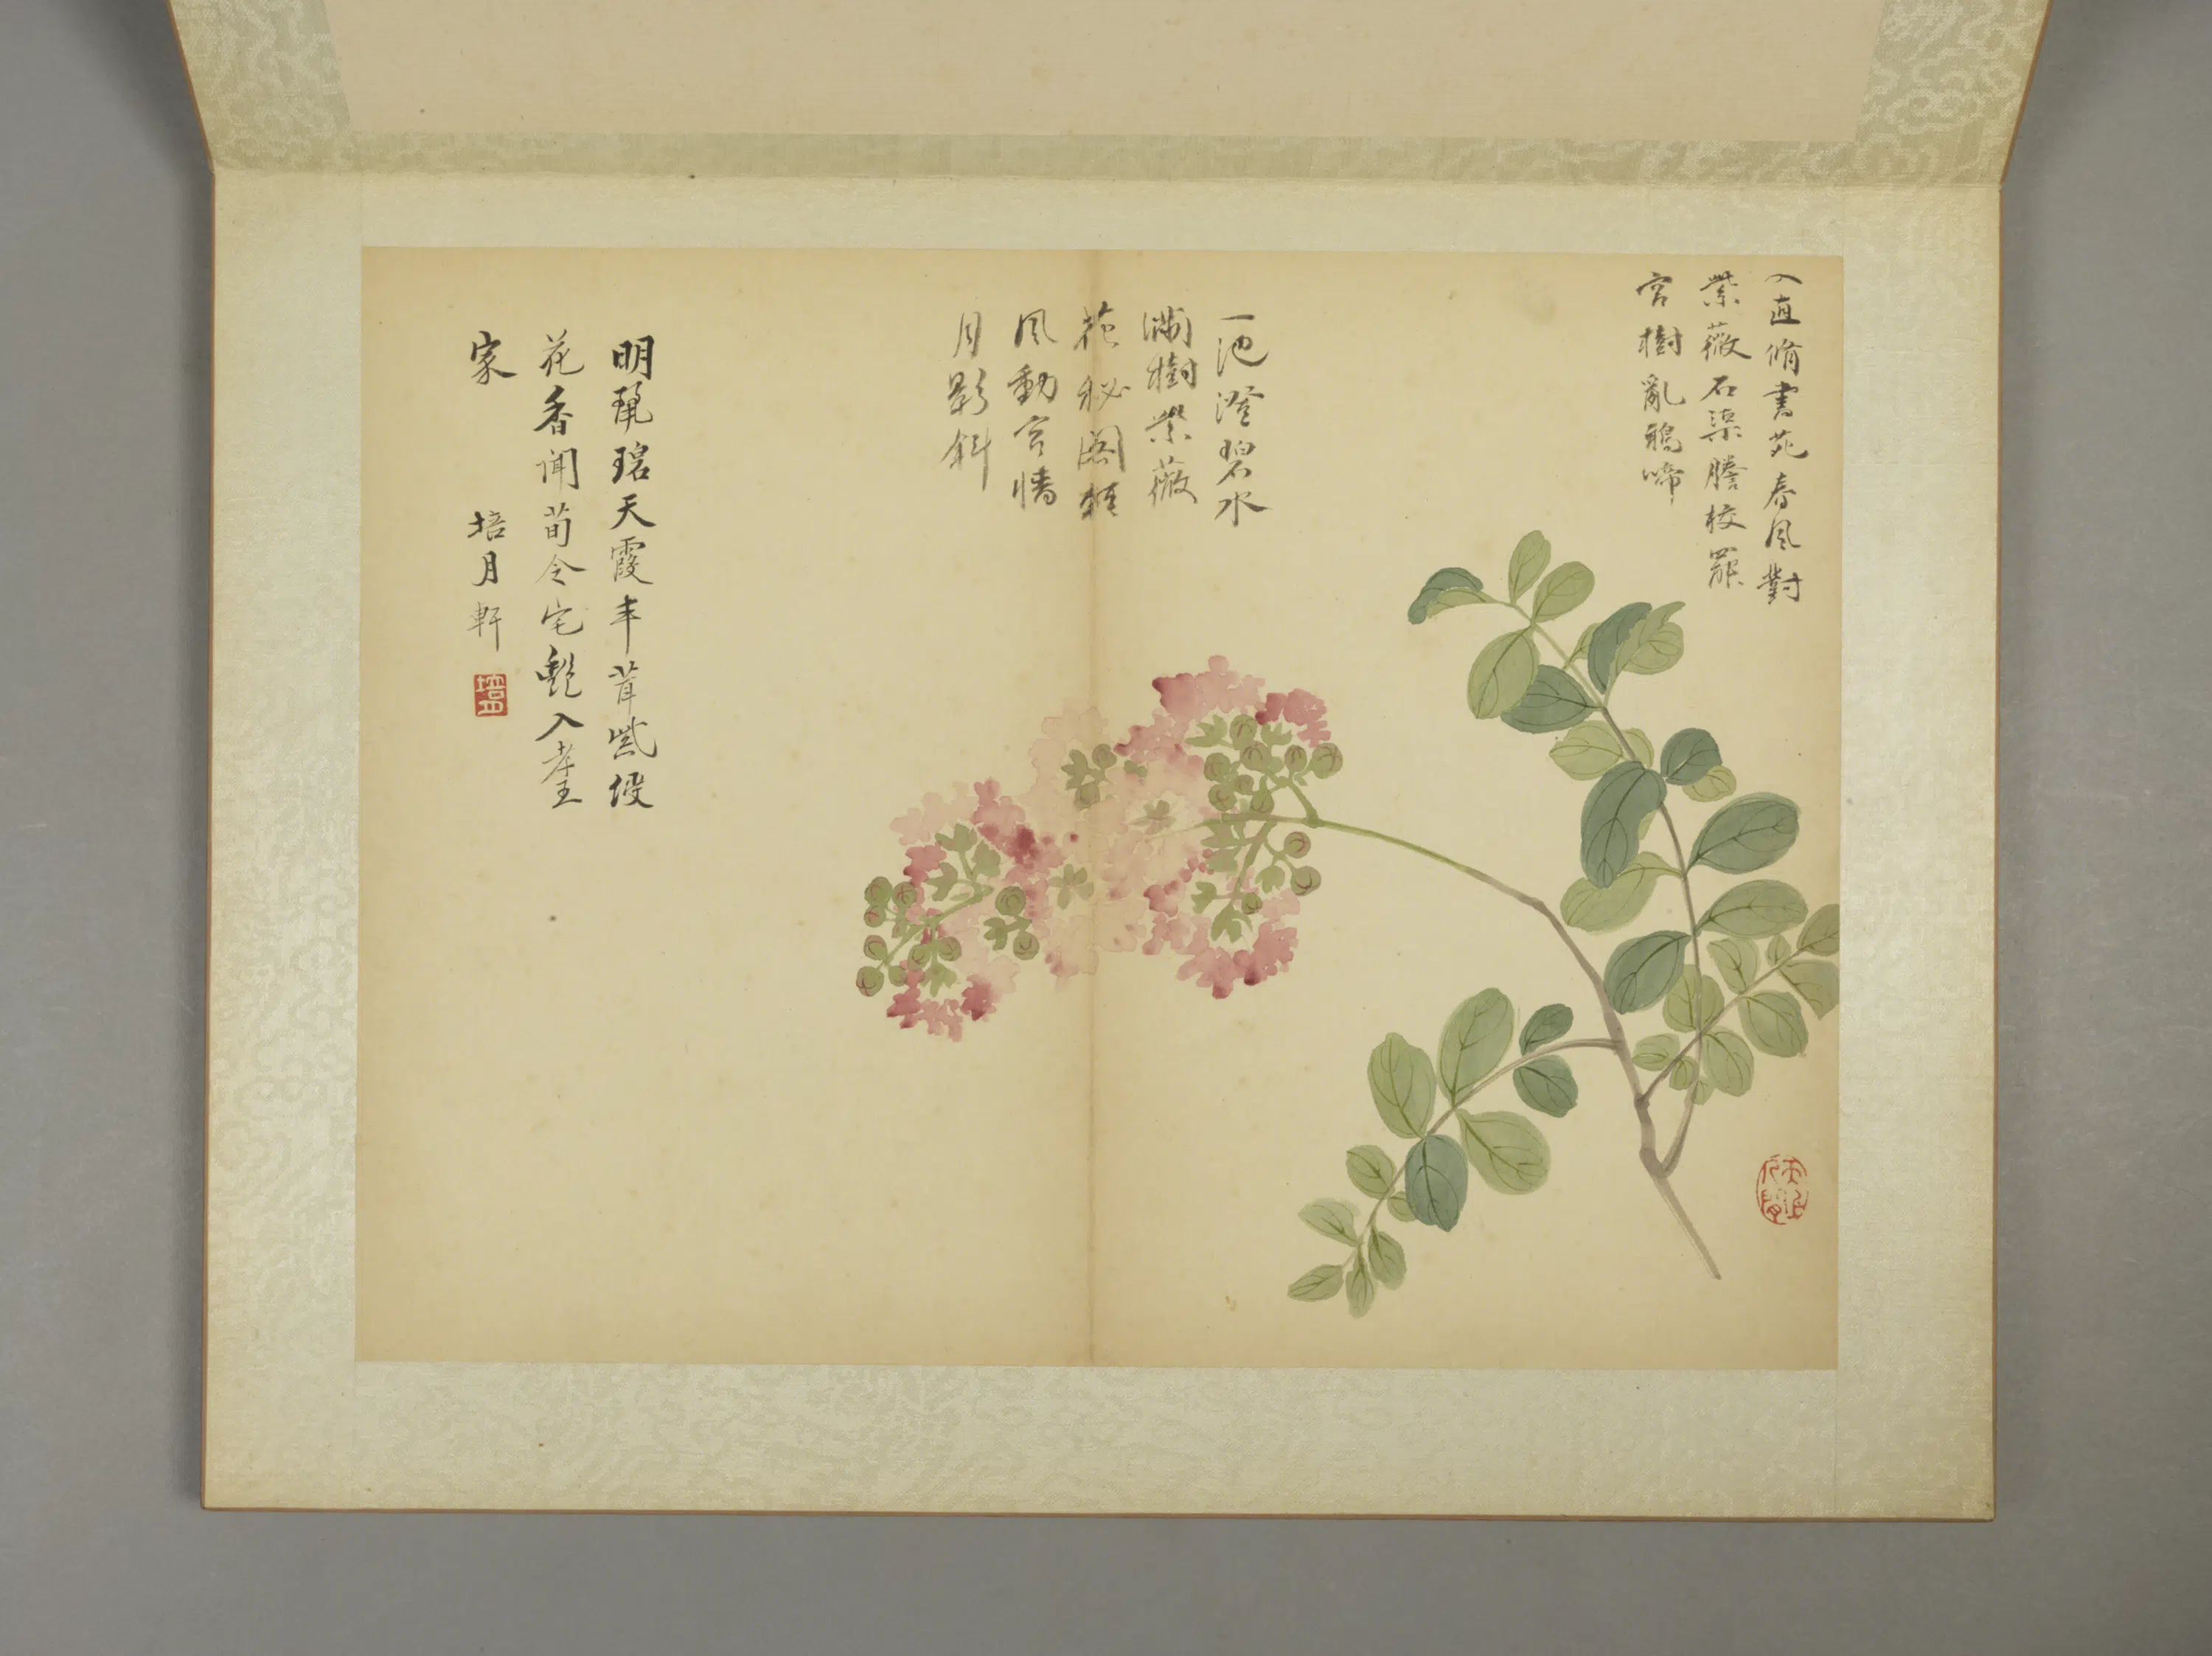 入直脩書苑春風對
紫薇石渠謄校罷
宮樹亂鴉啼
一池澄碧水
滿樹紫薇
花秘閣
風動宮墻
月影斜
明天霞丰茸紫綬
花香聞荀令宅艷入
家
培月軒